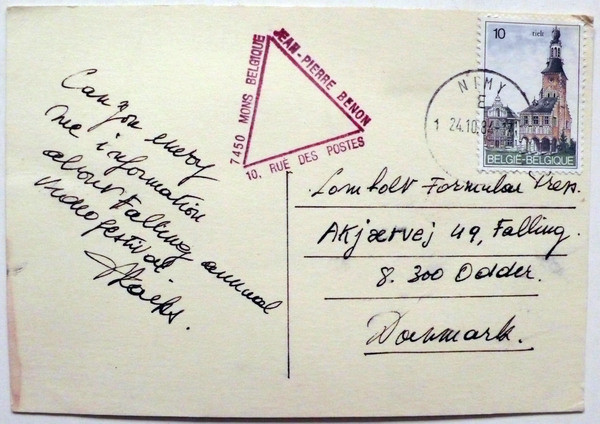 Can you envoy
me i nformation
about Falling annual
Videofestival
JEAN-PIERRE BENON
7450 MONS BELGIQUE
10, RUE DES POSTES
10
NIMY
1 24.10.84
BELGIË-BELGIQUE
Formular Press
Akjærvej 49, Falling.
8.300 Odder.
Danmark.